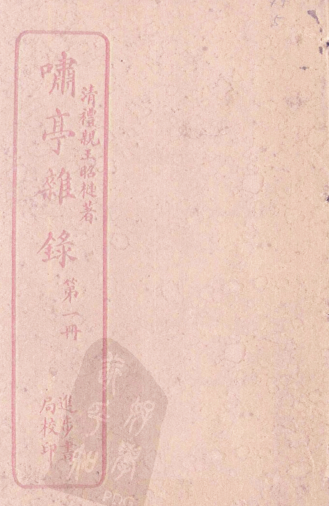 清禮親王昭槤著
嘯亭雜錄
第一冊
進步書
局校印